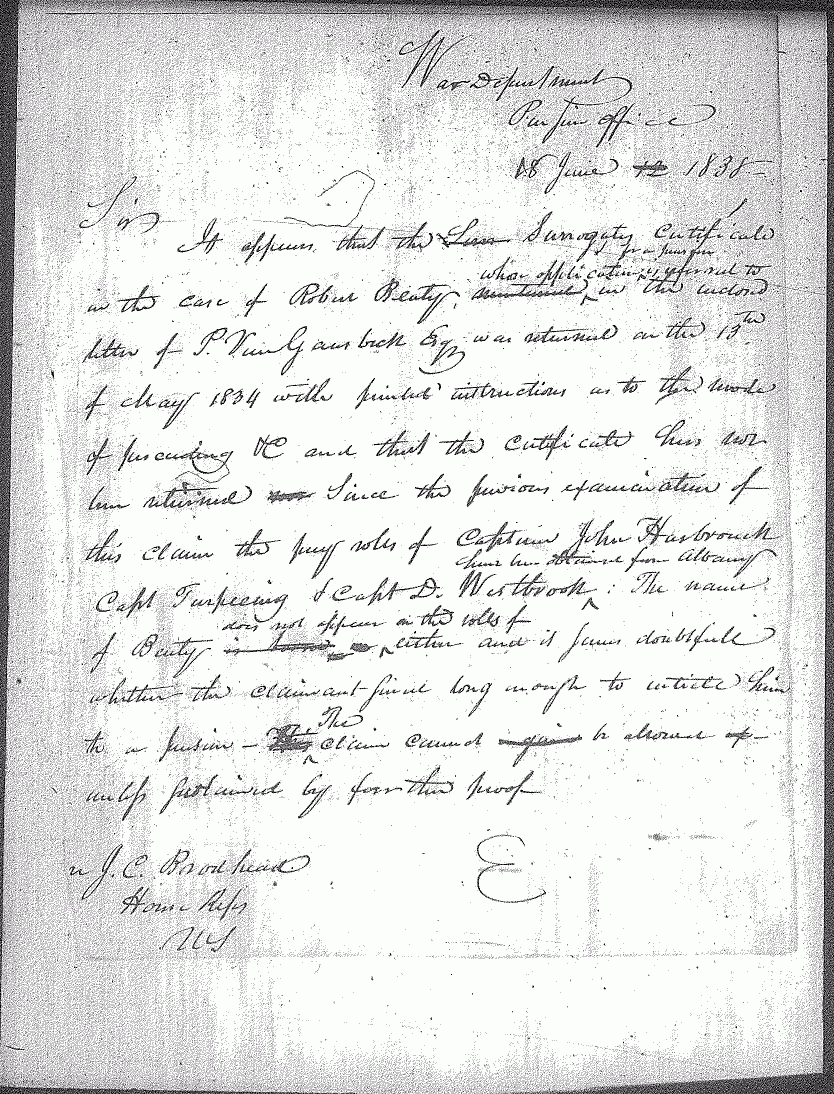 War Department
Pension office
18 June 12 1838
Sir
It appears that the Surrogates certificate
whose application for a pension is referred to
in the case of Robert Beaty, mentioned in the inclosed
letter of P. Van Gaasbeck Esq was returned on the 13th
of May 1834 with printed instructions as to the mode
of proceeding &C and that the certificate has not
been returned Since the previous examination of
this claim the pay rolls of Captain John Hasbrouck
have been obtained from Albany
Capt Turpeening & Capt D. Westbrook : The name
does not appear on the rolls of
of Beaty is borne on either and it seems doubtfull
whether the claimant served long enough to intitle him
The
to a pension - This claim cannot be allowed
unless sustained by further proof
J. C. Brodhead
House Reps
US
E